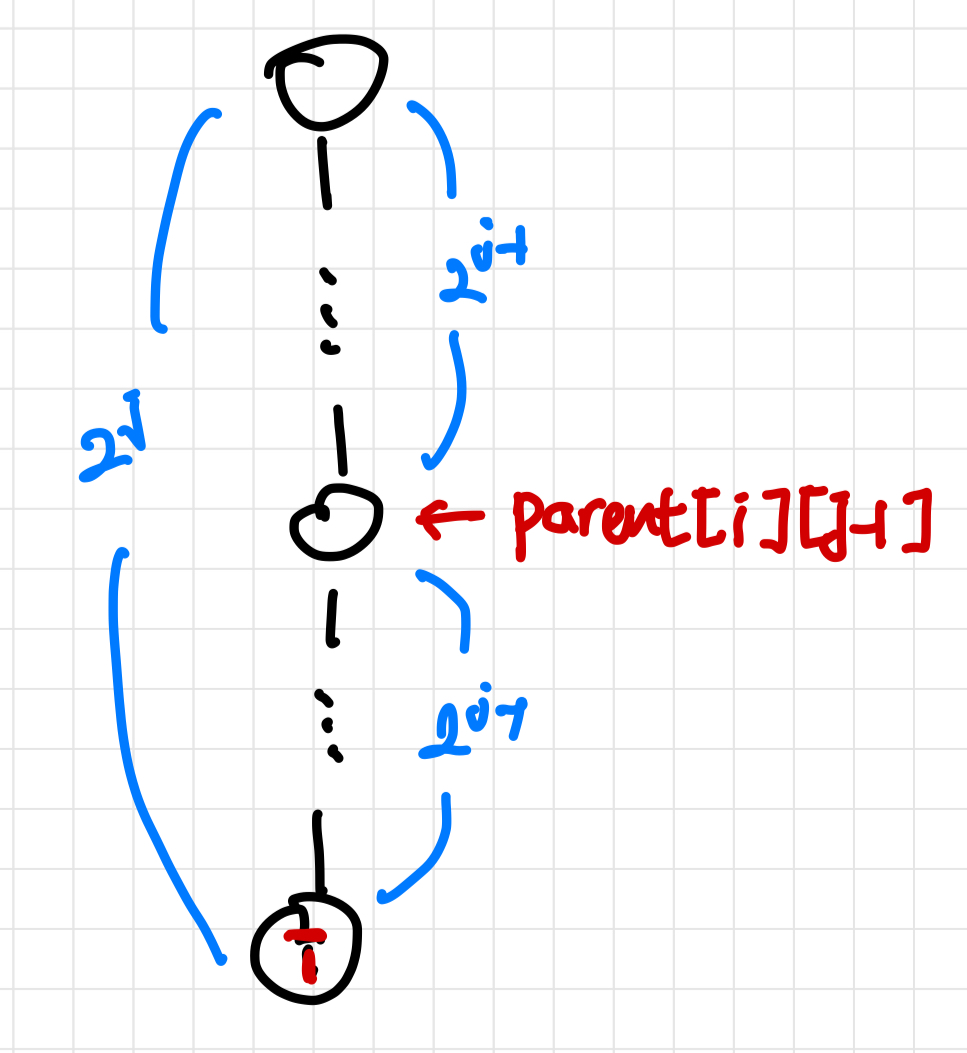 2^j-1
2^j
parent[i][j-1]
2^j-1
i